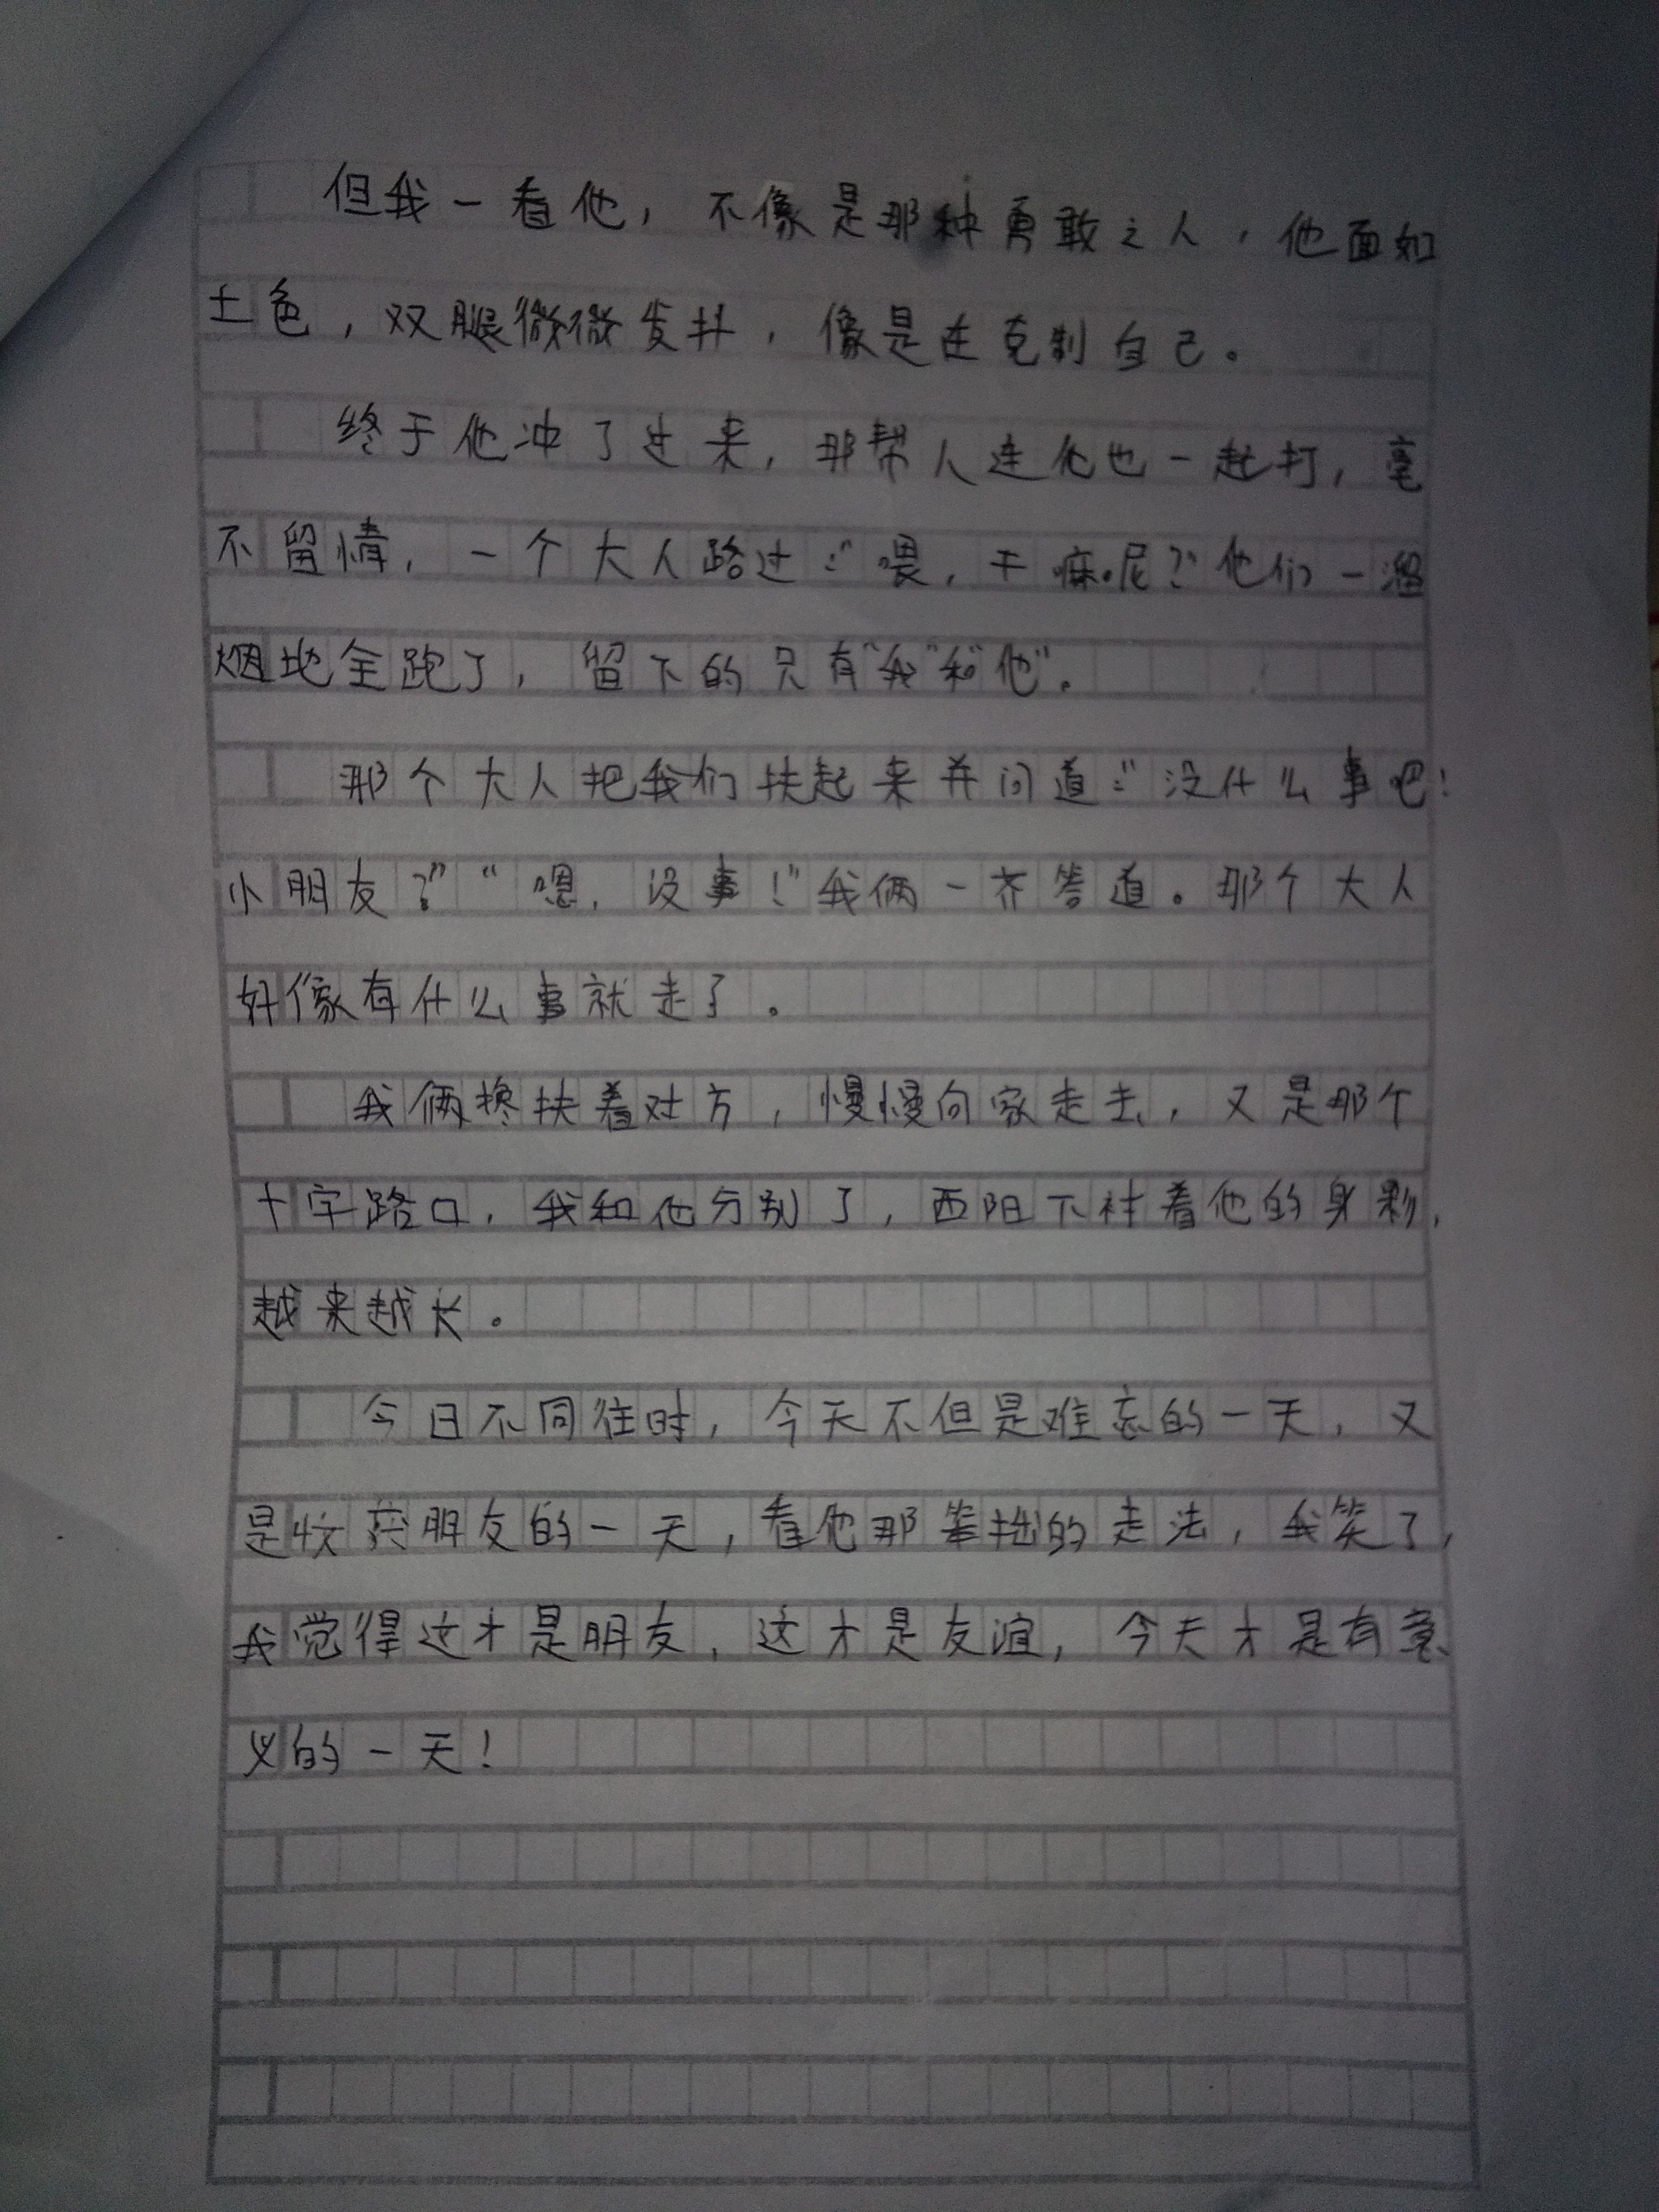 但我一看他，不像是那种勇敢之人，他面如
土色，双腿微微发抖，像是在克制自己。
终于他冲了过来，那帮人连他也一起打，毫
不留情，一个大人路过：“喂，干嘛呢？”他们一溜
烟地全跑了，留下的只有“我”和“他”。
那个大人把我们扶起来并问道：“没什么事吧！
小朋友？”“嗯，没事！”我俩一齐答道。那个大人
好像有什么事就走了。
我俩搀扶着对方，慢慢向家走去，又是那个
十字路口，我和他分别了，西阳下衬着他的身影，
越来越长。
今日不同往时，今天不但是难忘的一天，又
是收获朋友的一天，看他那笨拙的走法，我笑了，
我觉得这才是朋友，这才是友谊，今天才是有意
义的一天！